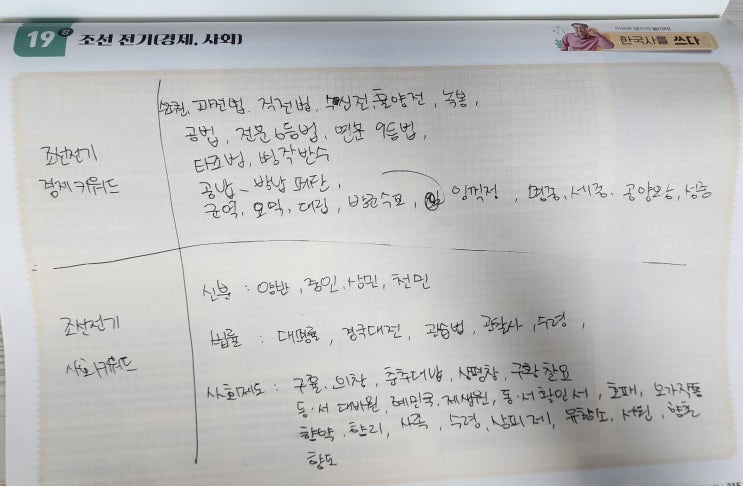 19강 조선 전기(경제, 사회)
한국사를 쓰다
과전법. 직전법, 수신전, 휼양전, 녹봉,
공법, 전분 6등법, 연분 9등법,
타조법, 병작반수
조선전기
경제 키워드
공납 - 방납 폐단,
군역, 요역, 대립, 방군수포, 임꺽정, 명종, 세종. 공양왕, 성종
신분 : 양반, 중인, 상민, 천민
조선전기
사회키워드
법률 : 대명률, 경국대전, 관습법, 관찰사, 수령,
사회제도 : 구휼, 의창, 춘추대납, 상평창, 구황찰요
동·서 대비원, 혜민국, 제생원, 동·서 활인서, 호패, 오가작통
향약, 향리, 사족, 수령, 상피제, 유향소, 서원, 향촌
향도